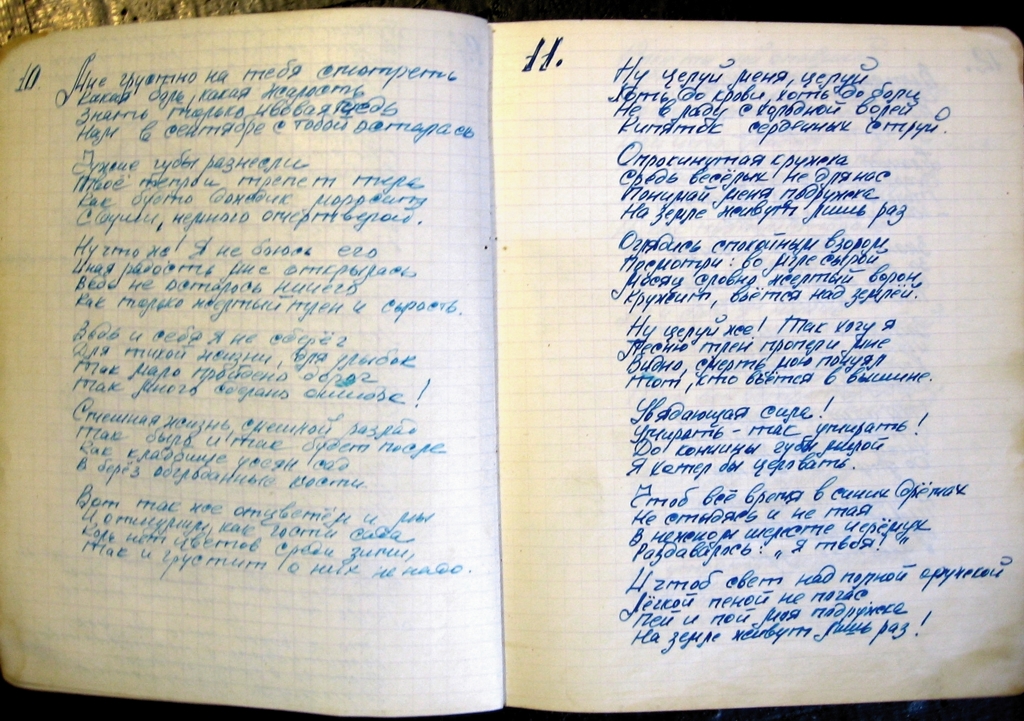 10
Мне грустно на тебя смотреть
Какая боль, какая жалость
Знать только ивовая медь
Нам в сентябре с тобой осталась
Чужие губы разнесли
Твоё тепло и трепет тела
Как будто дождик моросит
С души, немного омертвелой.
Ну что ж! Я не боюсь его
Иная радость мне открылась
Ведь не осталось ничего
Как только жёлтый тлен и сырость.
Ведь и себя я не сберёг
Для тихой жизни, для улыбок
Так мало пройдено дорог
Так много сделано ошибок!
Смешная жизнь, смешной разлад
Так было и так будет после
Как кладбище усеян сад
В берёз обглоданные кости.
Вот так же отцветём и мы
И отшумим, как гости сада
Коль нет цветов среди зимы,
Так и грустить о них не надо.
11.
Ну целуй меня, целуй
Хоть до крови, хоть до боли
Не в ладу с холодной волей
Кипяток сердечных струй.
Опрокинутая кружка
Средь весёлых не для нас
Понимай меня подружка
На земле живут лишь раз
Оглядись спокойным взором
Посмотри: во мгле сырой
Месяц словно жёлтый ворон
Кружит, вьётся над землёй.
Ну целуй же! Так хочу я
Песню тлен пропел и мне
Видно, смерть мою почуял
Тот, кто вьётся в вышине.
Увядающая сила!
Умирать - так умирать!
До кончины губы милой
Я хотел бы целовать.
Чтоб всё время в синих дрёмах
Не стыдясь и не тая
В нежном шелесте черёмух
Раздавалось: „Я твоя!"
И чтоб свет над полной кружкой
Лёгкой пеной не погас
Пей и пой моя подружка
На земле живут лишь раз!